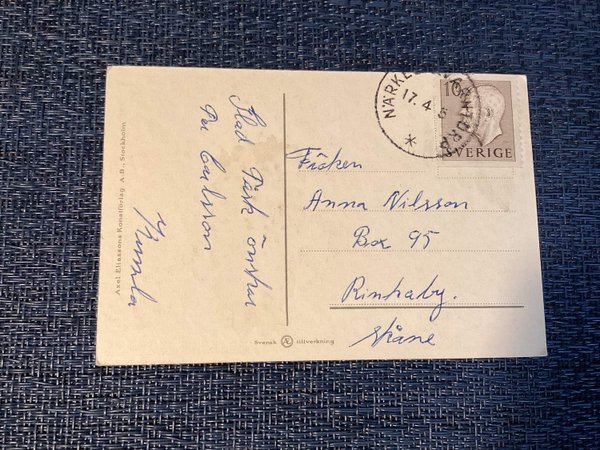 Glad Påsk önskar
Per Carlsson
Kumla
Axel Eliassons Konstförlag A.B., Stockholm
Svensk Æ tillverkning
NÄRKES
17.4
10
SVERIGE
Fröken
Anna Nilsson
Box 95
Rinkaby.
Skåne